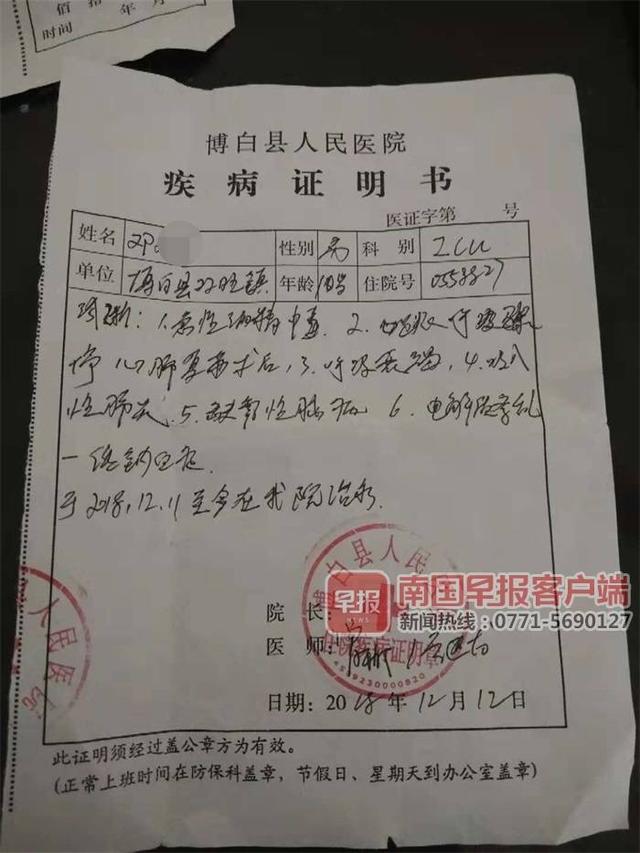 佰 拾
时间 年 月
博白县人民医院
疾病证明书
医证字第 号
姓名 性别 男 科别 ICU
单位 博白县双旺镇 年龄 住院号 0558827
诊断：1.急性酒精中毒 2.呼吸心跳骤
停 心肺复苏术后，3.呼吸衰竭，4.吸入
性肺炎 5.缺氧性脑病 6.电解质紊乱
一低钠血症
于2018.12.11至今在我院治疗.
博白县人民
人民医院
院长
医师
疾病证明章
4509230000820
日期：2018年12月12日
早报
NEWS
南国早报客户端
新闻热线：0771-5690127
此证明须经过盖公章方为有效。
(正常上班时间在防保科盖章，节假日、星期天到办公室盖章)